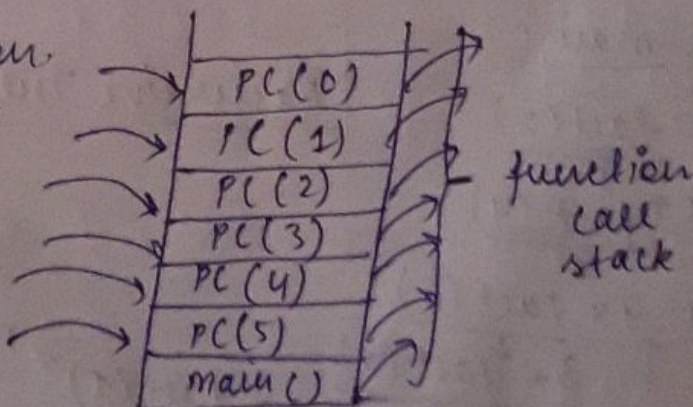 PC(0)
PC(1)
PC(2)
PC(3)
PC(4)
PC(5)
main()
function
call
stack